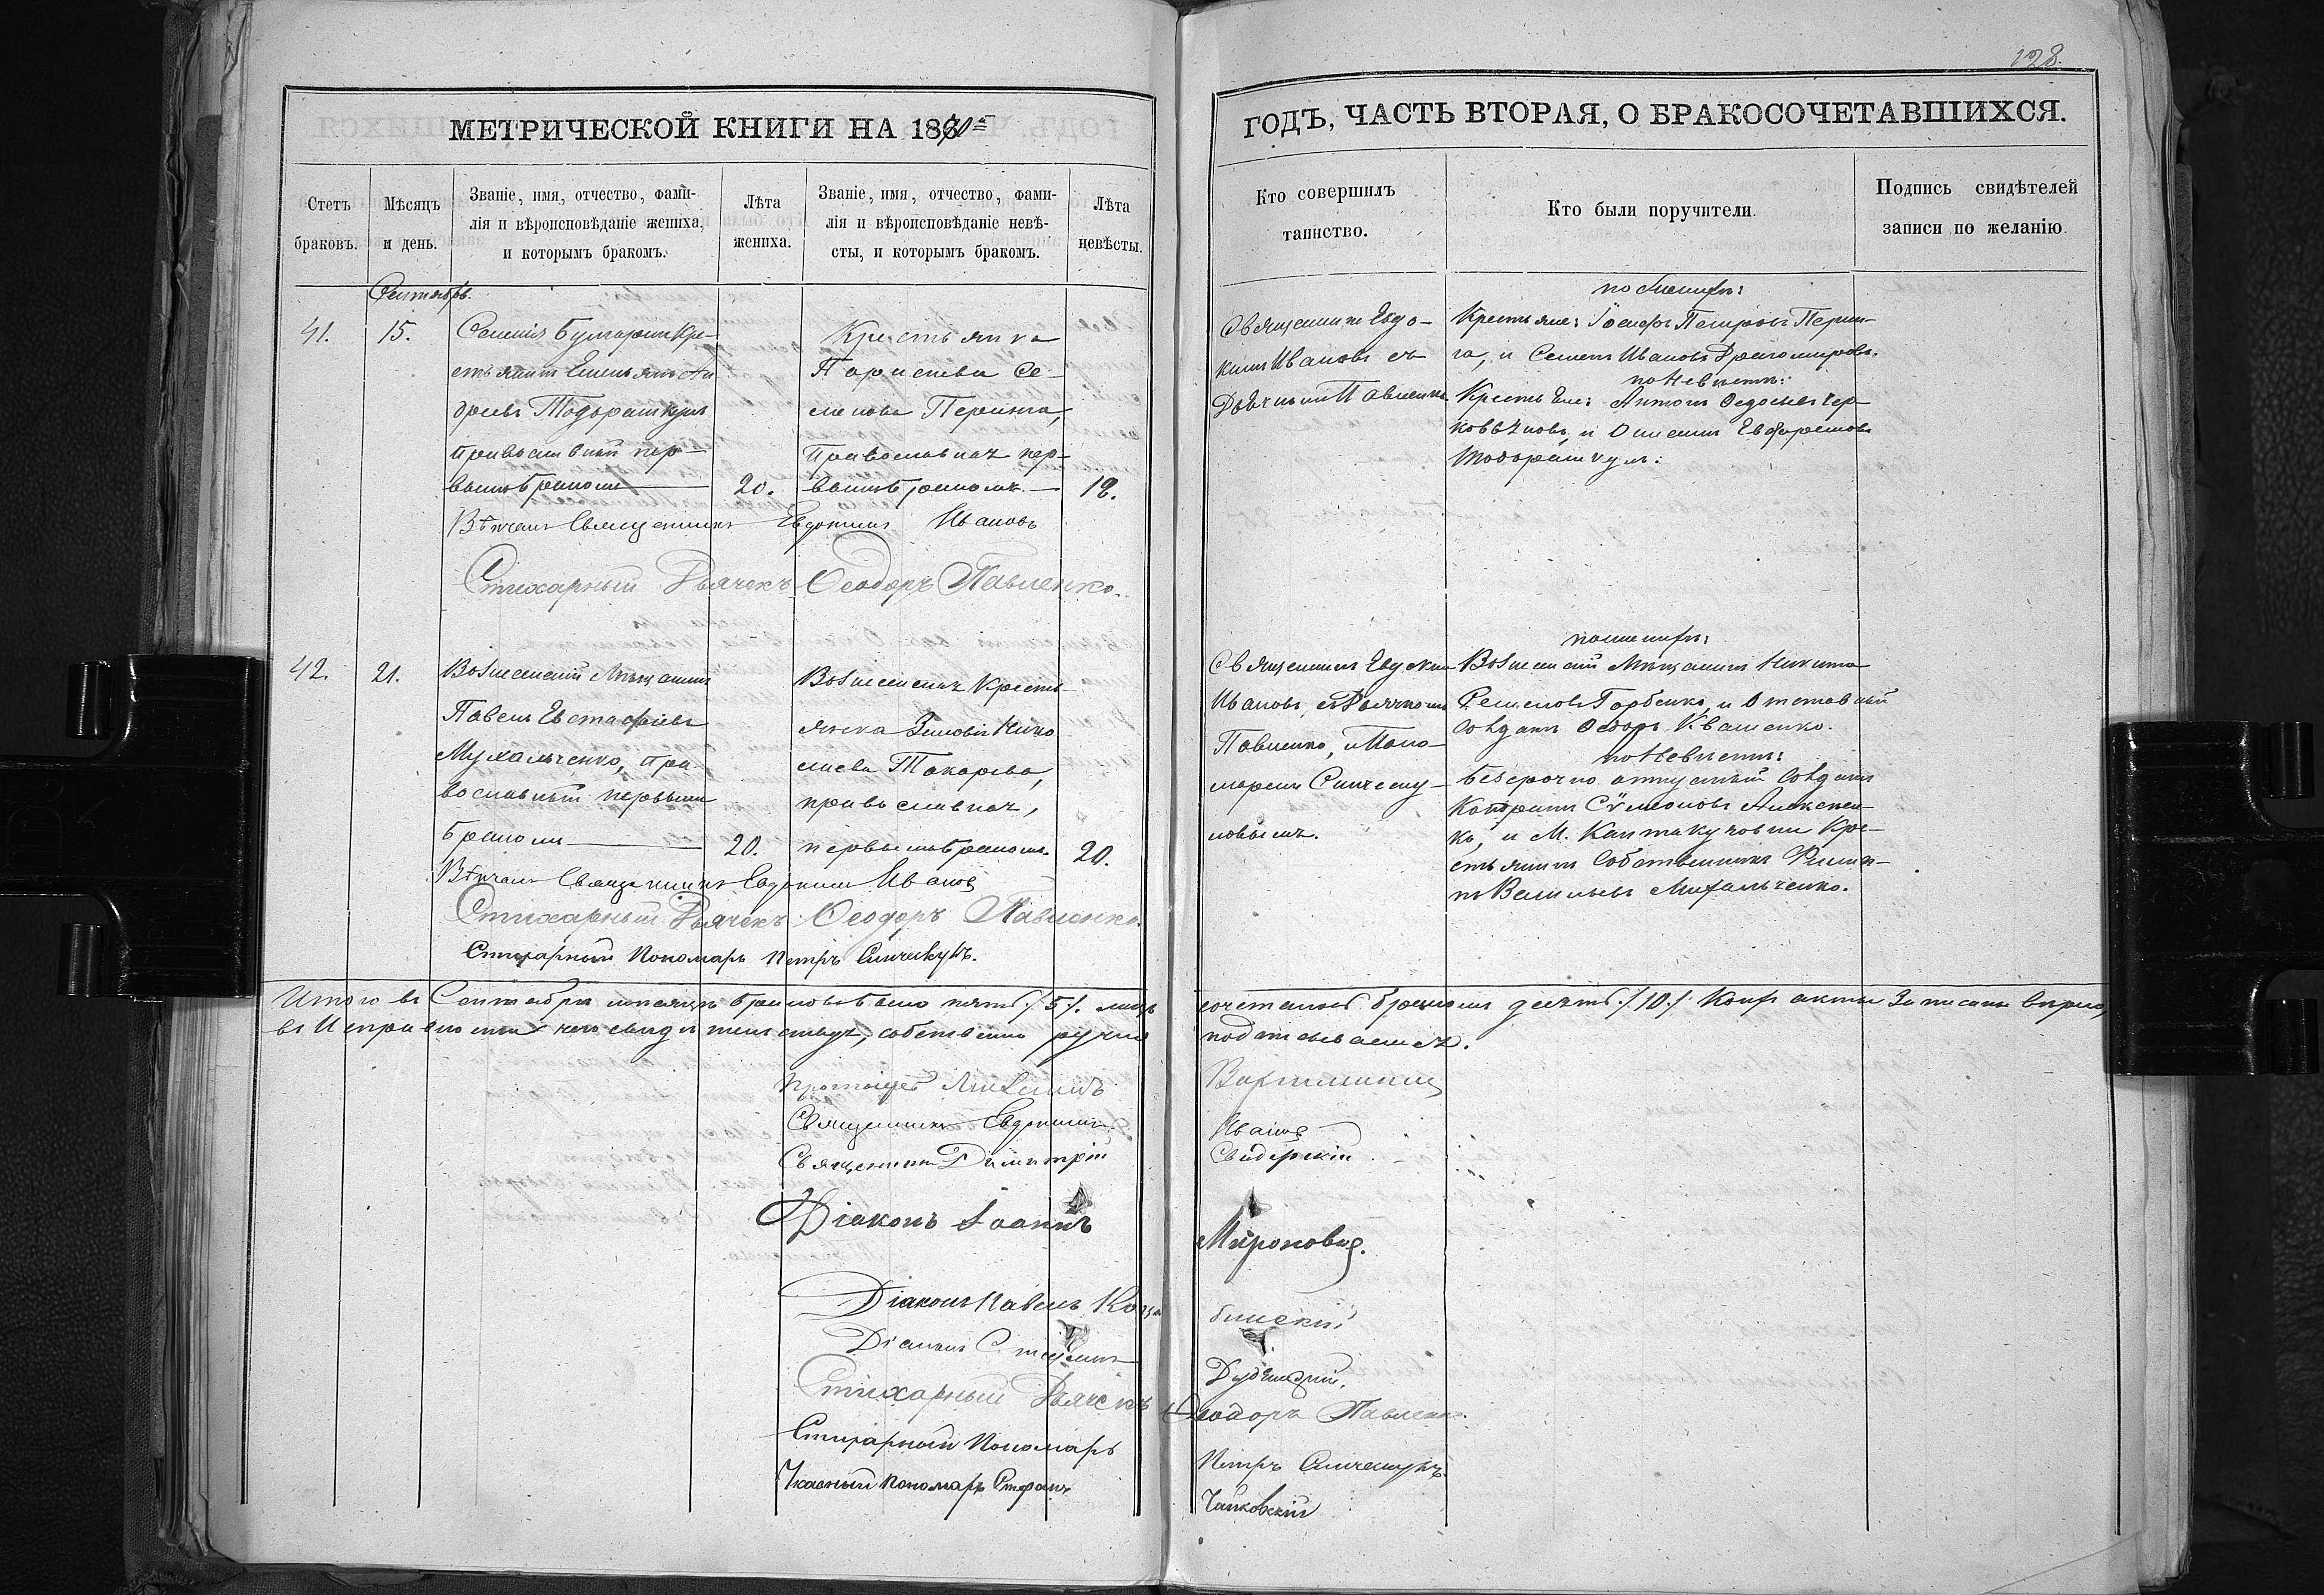 128.
МЕТРИЧЕСКОЙ КНИГИ НА 1870
ГОДЪ, ЧАСТЬ ВТОРАЯ, О БРАКОСОЧЕТАВШИХСЯ.
Счетъ браковъ.
Мѣсяцъ и день.
Званіе, имя, отчество, фами-
лія и вѣроисповѣданіе жениха,
и которымъ бракомъ.
Лѣта
жениха.
Званіе, имя, отчество, фами-
лія и вѣроисповѣданіе невѣ-
сты, и которымъ бракомъ.
Лѣта
невѣсты.
Кто совершилъ
таинство.
Кто были поручители.
Подпись свидѣтелей
записи по желанію.
Сентябрь.
41.
15.
Селенія Булгарки Кре-
стьянинъ Емельянъ Ан
дреевъ Тодорашкулъ
православный пер-
вымъ бракомъ
20.
Крестьянка
Параскева Се-
менова Перинга,
Православная пер-
вымъ бракомъ.
18.
Священникъ Евдо-
кимъ Ивановъ съ
Дьячкомъ Павленко
Крестьяне: Іосифъ Петровъ Перин-
га, и Семенъ Ивановъ Драгомировъ.
по Невѣстѣ:
Крестьяне: Антонъ Федосѣевъ
и Евфремовъ
Тодорашкулъ:
Вѣнчалъ Священникъ Евдокимъ Ивановъ
Стихарный Дьячекъ Ѳеодоръ Павленко.
42.
21.
Вознесенскій Мѣщанинъ
Павелъ Евстафіевъ
Михальченко, пра
вославный первымъ
бракомъ
20.
Вознесенская Кресть
янка Зиновія Нико
лаева Токарева,
православная,
первымъ бракомъ.
20.
Священникъ Евдоким
Ивановъ, съ Дьячкомъ
Павленко, и Поно-
маремъ
Вознесенскій Мѣщанинъ Никита
Семеновъ Горбенко, и Отставный
Солдатъ Ѳедоръ Квашенко.
по Невѣстѣ:
Безсрочно отпускный Солдатъ
Кондратъ Сѵмеоновъ Алексеен-
ко, и М. Кантакузовки Кре-
стьянинъ Собственникъ Филип-
пъ Васильевъ Михальченко.
Вѣнчалъ Священникъ Евдокимъ Ивановъ
Стихарный Дьячекъ Ѳеодоръ Павленко.
Стихарный Пономарь Петръ
Итого въ Сентябрѣ мѣсяцѣ браковъ было пять /5/. лицъ
сочеталось бракомъ десять /10/ Кои акты Записаны вѣрно,
въ Исправности чего свидѣтельствуя, собственно ручно
подписываемся.
Протоіерей
Священникъ Евдокимъ
Ивановъ
Священникъ Димитрій
Свидерскій
Діаконъ Іоаннъ
Мироновъ.
Діаконъ Павелъ Коцю
бинскій
Діаконъ
Стихарный Дьячекъ Ѳеодоръ Павленко.
Стихарный Пономарь
Петръ
Указный Пономарь Стефанъ
Чайковскій